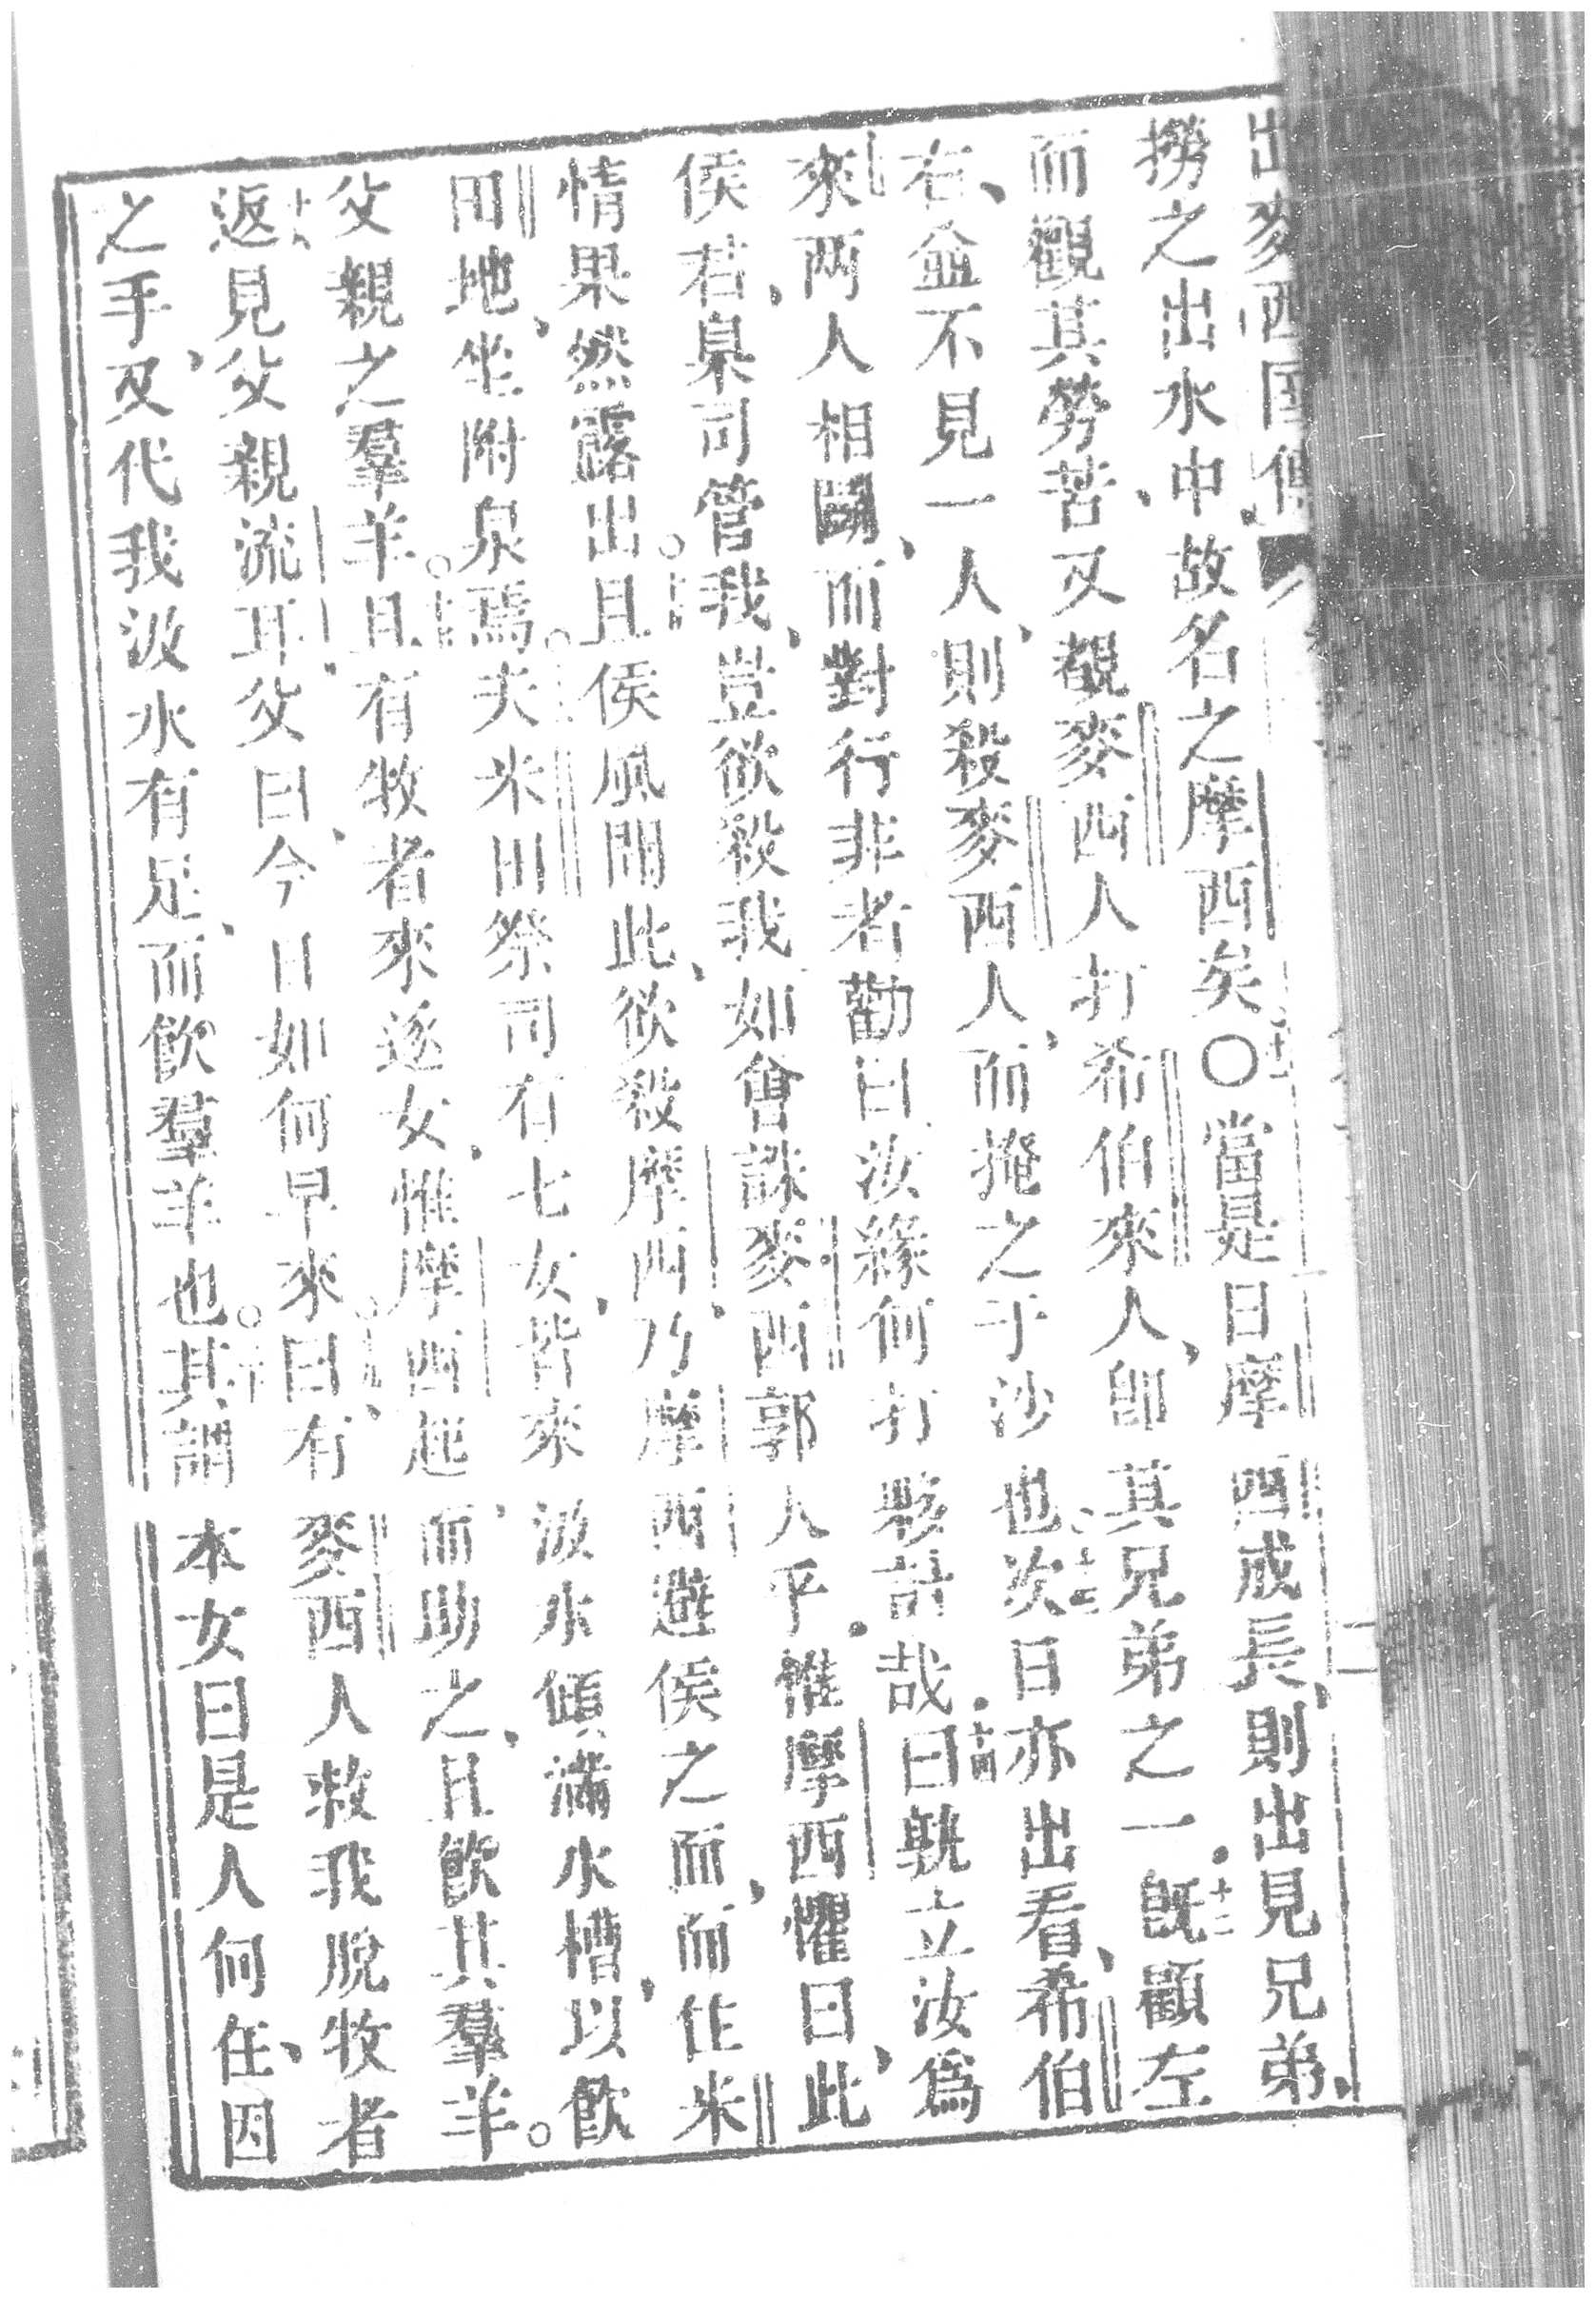 出麥西國傳 二
撈之出水中、故名之摩西矣〇十一當是日摩西成長、則出見兄弟、
而觀其勞苦、又覩麥西人打希伯來人、即其兄弟之一。十二既顧左
右、並不見一人、則殺麥西人、而掩之于沙也、十三次日亦出看、希伯
來两人相鬬、而對行非者勸曰、汝緣何打夥計哉。十四曰、孰立汝爲
侯君、臬司管我、豈欲殺我、如會誅麥西郭人乎。惟摩西懼曰、此
情果然露出。十五且侯風聞此、欲殺摩西、乃摩西避侯之面、而住米
田地、坐附泉焉。十六夫米田祭司有七女、皆來汲水傾滿水槽、以飲
父親之羣羊。十七且有牧者來逐女、惟摩西起、而助之、且飲其羣羊。
十八返見父親流耳、父曰、今日如何早來。十九曰、有麥西人救我脫牧者
之手、又代我汲水有足、而飲羣羊也。二十其謂本女曰是人何在、因